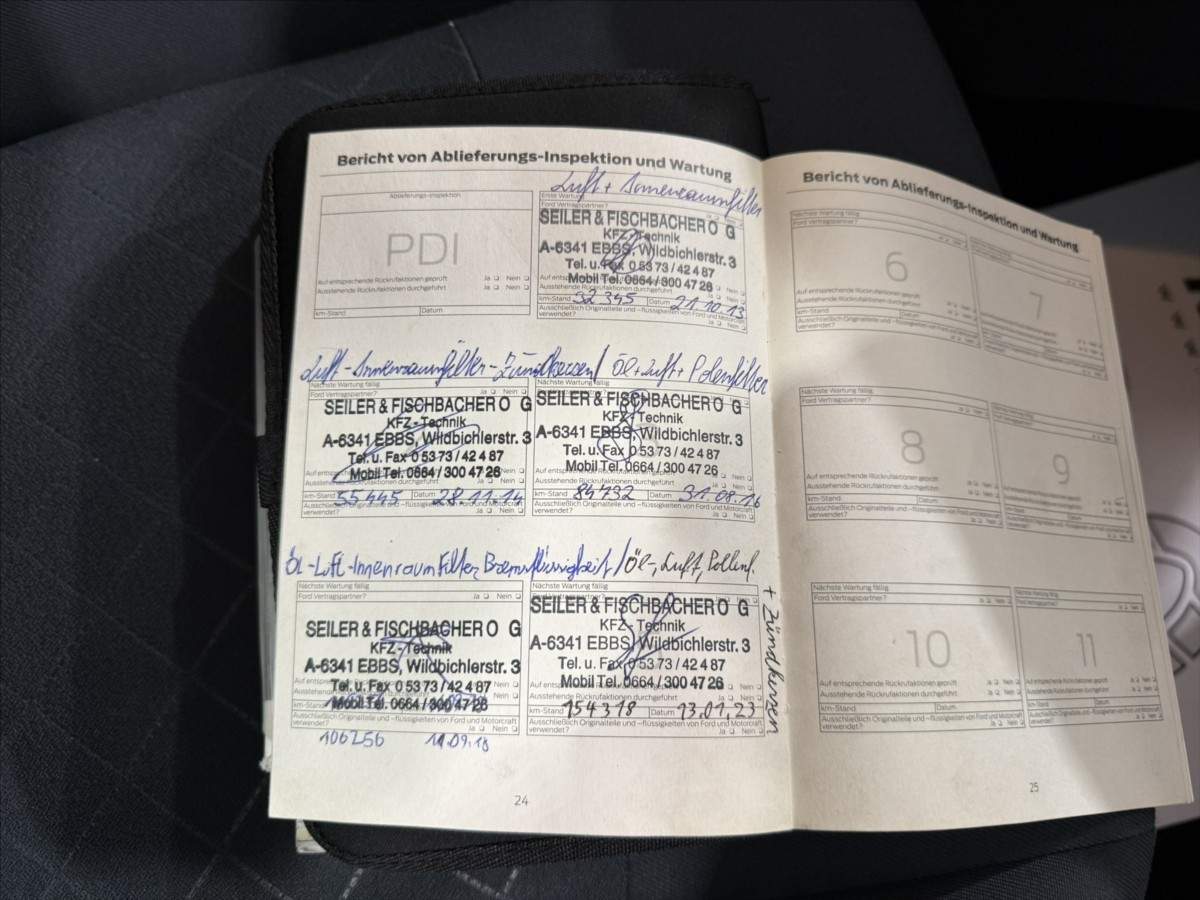 Bericht von Ablieferungs-Inspektion und Wartung
Ablieferungs-Inspektion
PDI
Auf entsprechende Rückrufaktionen geprüft Ja Nein
Ausstehende Rückrufaktionen durchgeführt Ja Nein
km-Stand Datum
Luft +
Erste Wartung
Ford Vertragspartner?
SEILER & FISCHBACHER O G
KFZ-Technik
A-6341 EBBS, Wildbichlerstr. 3
Tel. u. Fax 0 53 73 / 42 4 87
Mobil Tel. 0664 / 300 47 26
Ausstehende Rückrufaktionen durchgeführt Ja Nein
km-Stand 32 345 Datum 21.10.13
Ausschließlich Originalteile und -flüssigkeiten von Ford und Motorcraft
verwendet? Ja Nein
Luft-
Nächste Wartung fällig
Ford Vertragspartner? Ja Nein
SEILER & FISCHBACHER O G
KFZ-Technik
A-6341 EBBS, Wildbichlerstr. 3
Tel. u. Fax 0 53 73 / 42 4 87
Mobil Tel. 0664 / 300 47 26
km-Stand 55 445 Datum 28.11.14
Ausschließlich Originalteile und -flüssigkeiten von Ford und Motorcraft
verwendet? Ja Nein
Öl + Luft + Polenfilter
Nächste Wartung fällig
Ford Vertragspartner?
SEILER & FISCHBACHER O G
KFZ-Technik
A-6341 EBBS, Wildbichlerstr. 3
Tel. u. Fax 0 53 73 / 42 4 87
Mobil Tel. 0664 / 300 47 26
Ausstehende Rückrufaktionen durchgeführt Ja Nein
km-Stand 84732 Datum 31.08.16
Ausschließlich Originalteile und -flüssigkeiten von Ford und Motorcraft
verwendet? Ja Nein
Öl-Luft-Innenraumfilter,
Nächste Wartung fällig
Ford Vertragspartner? Ja Nein
SEILER & FISCHBACHER O G
KFZ-Technik
A-6341 EBBS, Wildbichlerstr. 3
Tel. u. Fax 0 53 73 / 42 4 87
Mobil Tel. 0664 / 300 47 26
km-Stand
Ausschließlich Originalteile und -flüssigkeiten von Ford und Motorcraft
verwendet? Ja Nein
106256 11.09.18
Öl-, Luft, Pollenf.
+ Zündkerzen
Nächste Wartung fällig
Ford Vertragspartner?
SEILER & FISCHBACHER O G
KFZ-Technik
A-6341 EBBS, Wildbichlerstr. 3
Tel. u. Fax 0 53 73 / 42 4 87
Mobil Tel. 0664 / 300 47 26
Ausstehende Rückrufaktionen durchgeführt Ja Nein
km-Stand 154318 Datum 13.01.23
Ausschließlich Originalteile und -flüssigkeiten von Ford und Motorcraft
verwendet? Ja Nein
24
Bericht von Ablieferungs-Inspektion und Wartung
Nächste Wartung fällig
Ford Vertragspartner?
6
Auf entsprechende Rückrufaktionen geprüft
Ausstehende Rückrufaktionen durchgeführt
km-Stand Datum
Ausschließlich Originalteile und -flüssigkeiten von Ford und Motorcraft
verwendet?
7
Nächste Wartung fällig
Ford Vertragspartner?
8
Auf entsprechende Rückrufaktionen geprüft
Ausstehende Rückrufaktionen durchgeführt
km-Stand Datum
Ausschließlich Originalteile und -flüssigkeiten von Ford und Motorcraft
verwendet?
9
Nächste Wartung fällig
Ford Vertragspartner?
10
Auf entsprechende Rückrufaktionen geprüft
Ausstehende Rückrufaktionen durchgeführt
km-Stand Datum
Ausschließlich Originalteile und -flüssigkeiten von Ford und Motorcraft
verwendet?
11
25